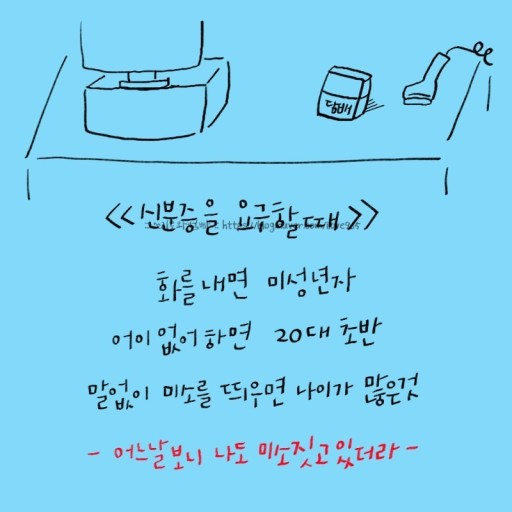 담배
<<신분증을 요구할때>>
화를내면 미성년자
어이없어하면 20대 초반
말없이 미소를 띄우면 나이가 많은것
- 어느날보니 나도 미소짓고있더라 -